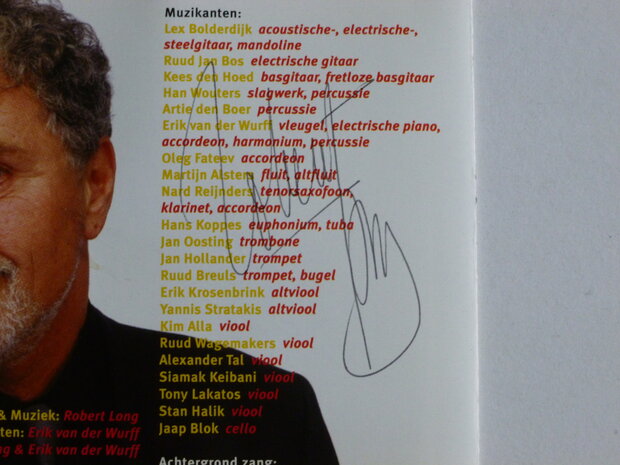 Muzikanten:
Lex Bolderdijk acoustische-, electrische-,
steelgitaar, mandoline
Ruud Jan Bos electrische gitaar
Kees den Hoed basgitaar, fretloze basgitaar
Han Wouters slagwerk, percussie
Artie den Boer percussie
Erik van der Wurff vleugel, electrische piano,
accordeon, harmonium, percussie
Oleg Fateev accordeon
Martijn Alsters fluit, altfluit
Nard Reijnders tenorsaxofoon,
klarinet, accordeon
Hans Koppes euphonium, tuba
Jan Oosting trombone
Jan Hollander trompet
Ruud Breuls trompet, bugel
Erik Krosenbrink altviool
Yannis Stratakis altviool
Kim Alla viool
Ruud Wagemakers viool
Alexander Tal viool
Siamak Keibani viool
Tony Lakatos viool
Stan Halik viool
Jaap Blok cello
& Muziek: Robert Long
ten: Erik van der Wurff
ng & Erik van der Wurff
Achtergrond zang: